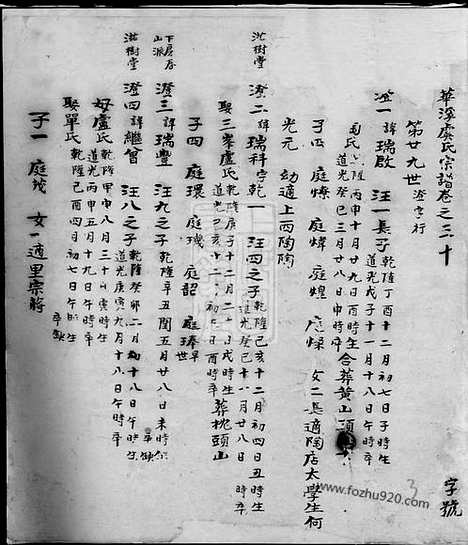 華溪盧氏宗譜卷之三十
字號
第廿九世 澄字行
澄一 諱瑞啟 汪一長子 乾隆丁酉十二月初七日子時生
道光戊子十一月十八日午時卒
氏 乾隆丙申十月廿九日酉時生
道光癸巳三月廿八日申時卒 合葬黃山頂
子四 庭燎 庭煒 庭煌 庭燦 女二長適陶店太學生何
光元 幼適上西陶陶
沈樹堂 澄二 諱瑞科字乾一 汪四之子 乾隆己亥十二月初四日丑時生
道光己亥十一月廿八日 時卒
娶三峯盧氏 乾隆庚子十二月二十日戌時生
道光己亥十二月初七日酉時卒 葬枕頭山
子四 庭環 庭璣 庭韶 庭瑧早世
下房存山派 澄三 諱瑞豐 汪九之子 乾隆辛丑閏五月廿八日未時生
卒缺
滋樹堂 澄四 諱繼曾 汪八之子 乾隆癸卯二月初十八日午時生
道光庚寅九月十八日午時卒
母盧氏 乾隆甲申八月三十日寅時生
道光丙申五月十九日午時卒
娶單氏 乾隆己酉四月初七日午時生
卒缺
子一 庭坡 女一適里宗蔣
3
www.fozhu920.com